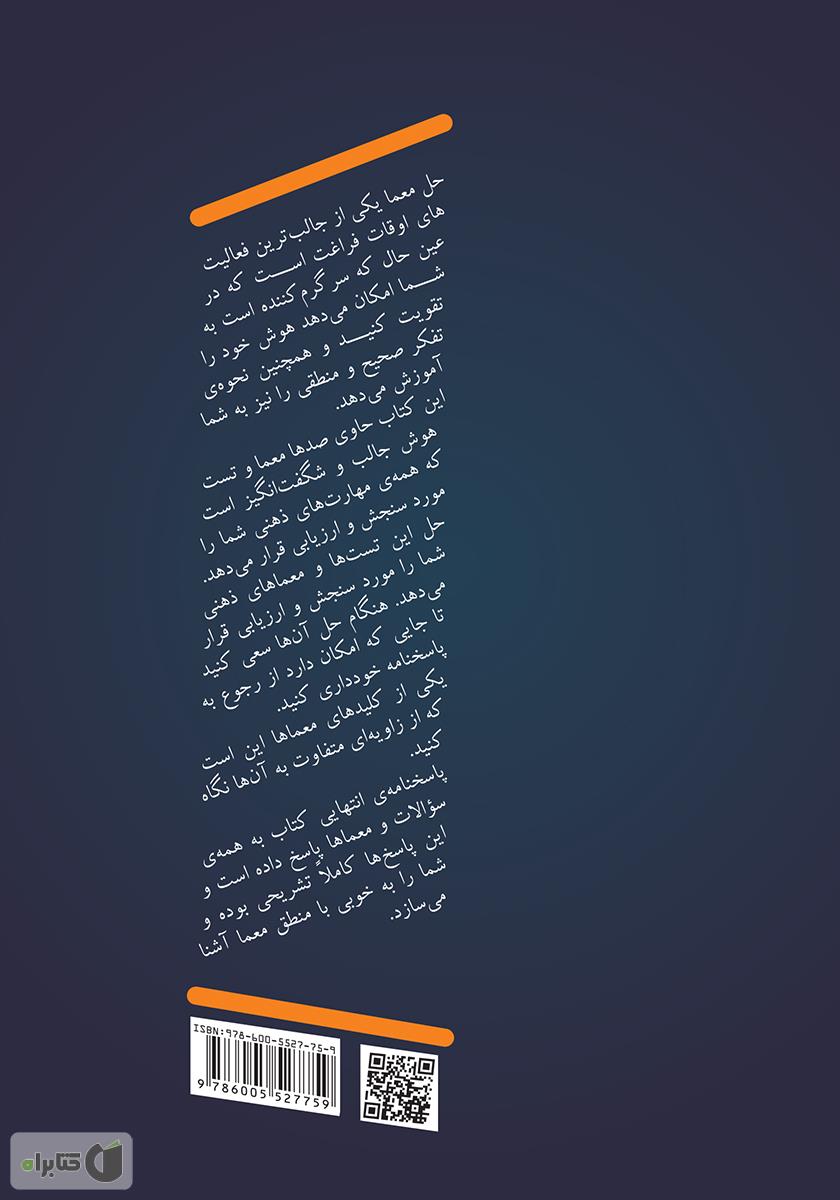 حل معما یکی از جالب‌ترین فعالیت
های اوقات فراغت است که در
عین حال که سر گرم کننده است به
شما امکان می‌دهد هوش خود را
تقویت کنید و همچنین نحوه‌ی
تفکر صحیح و منطقی را نیز به شما
آموزش می‌دهد.
این کتاب حاوی صدها معما و تست
هوش جالب و شگفت‌انگیز است
که همه‌ی مهارت‌های ذهنی شما را
مورد سنجش و ارزیابی قرار می‌دهد.
حل این تست‌ها و معماهای ذهنی
شما را مورد سنجش و ارزیابی قرار
می‌دهد. هنگام حل آن‌ها سعی کنید
تا جایی که امکان دارد از رجوع به
پاسخنامه خودداری کنید.
یکی از کلیدهای معماها این است
که از زاویه‌ای متفاوت به آن‌ها نگاه
کنید.
پاسخنامه‌ی انتهایی کتاب به همه‌ی
سؤالات و معماها پاسخ داده است و
این پاسخ‌ها کاملاً تشریحی بوده و
شما را به خوبی با منطق معما آشنا
می‌سازد.
ISBN:978-600-5527-75-9
9 786005 527759
کتابراه